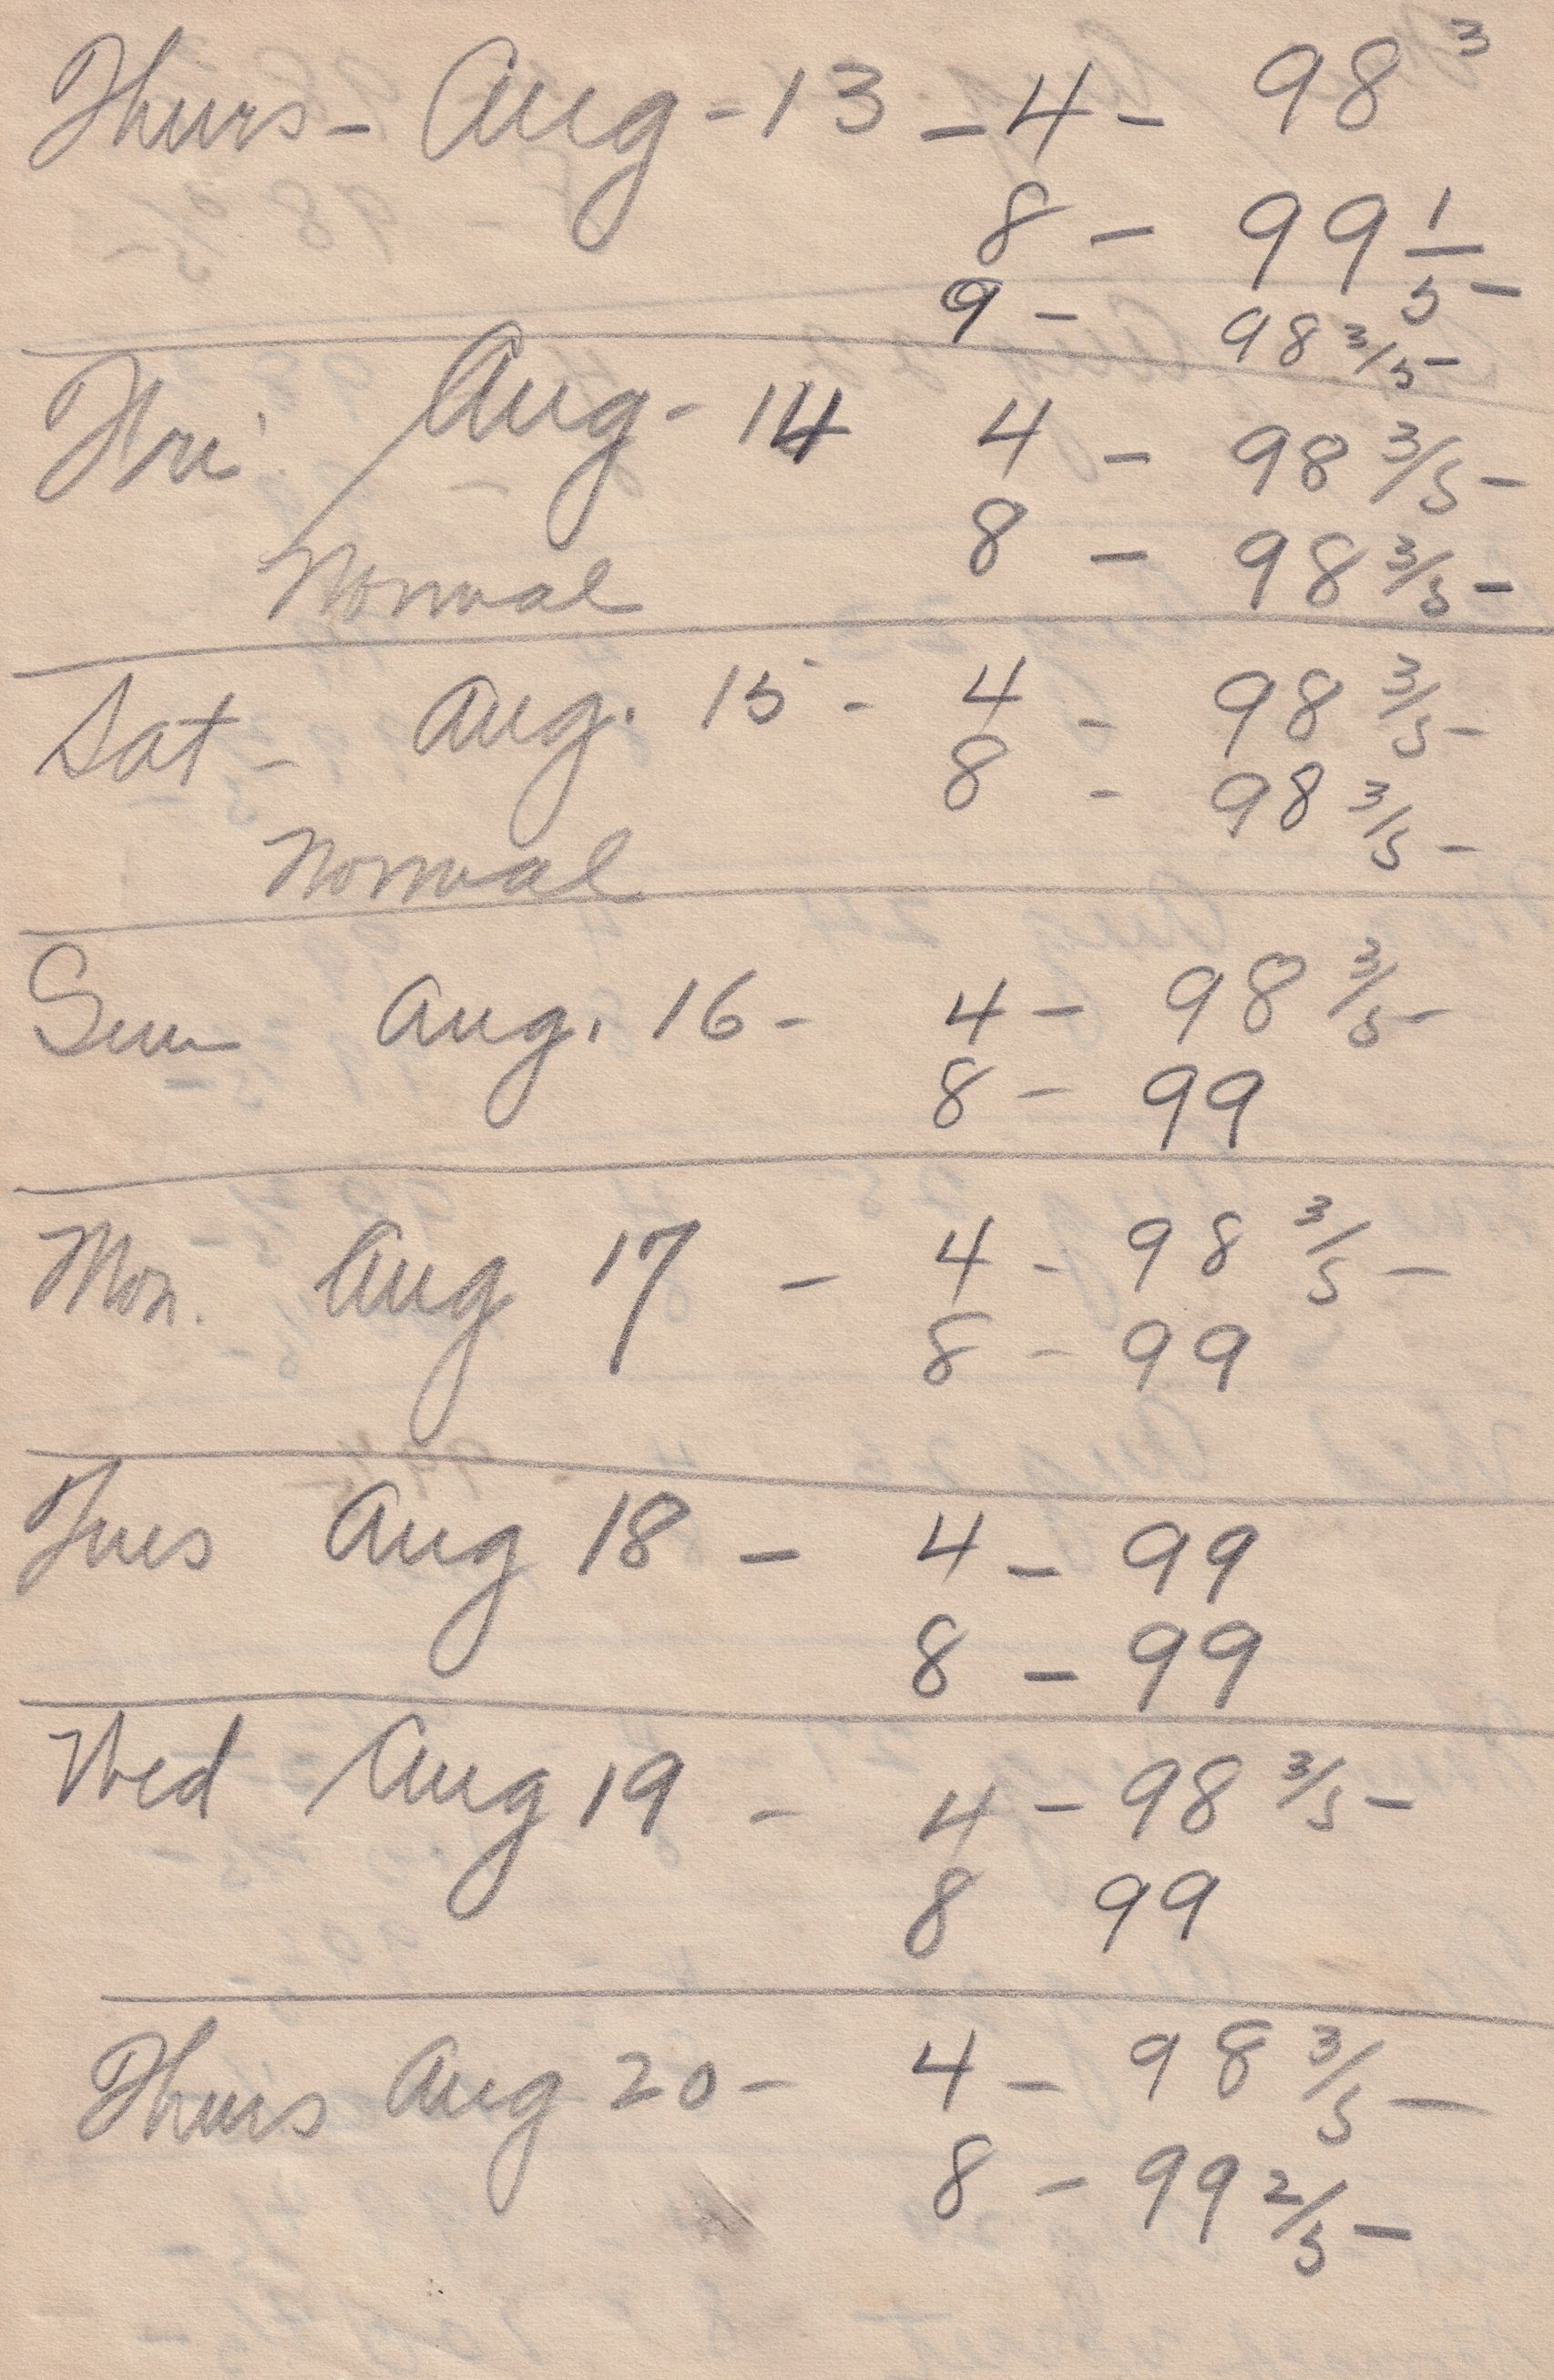 Thurs - Aug - 13 - 4 - 98 3
8 - 99 1/5 -
9 - 98 3/5 -
Fri Aug - 14 4 - 98 3/5 -
8 - 98 3/5 -
Normal
Sat - Aug. 15 - 4 - 98 3/5 -
8 - 98 3/5 -
Normal
Sun Aug. 16 - 4 - 98 3/5 -
8 - 99
Mon. Aug 17 - 4 - 98 3/5 -
8 - 99
Tues Aug 18 - 4 - 99
8 - 99
Wed Aug 19 - 4 - 98 3/5 -
8 99
Thurs Aug 20 - 4 - 98 3/5 -
8 - 99 2/5 -